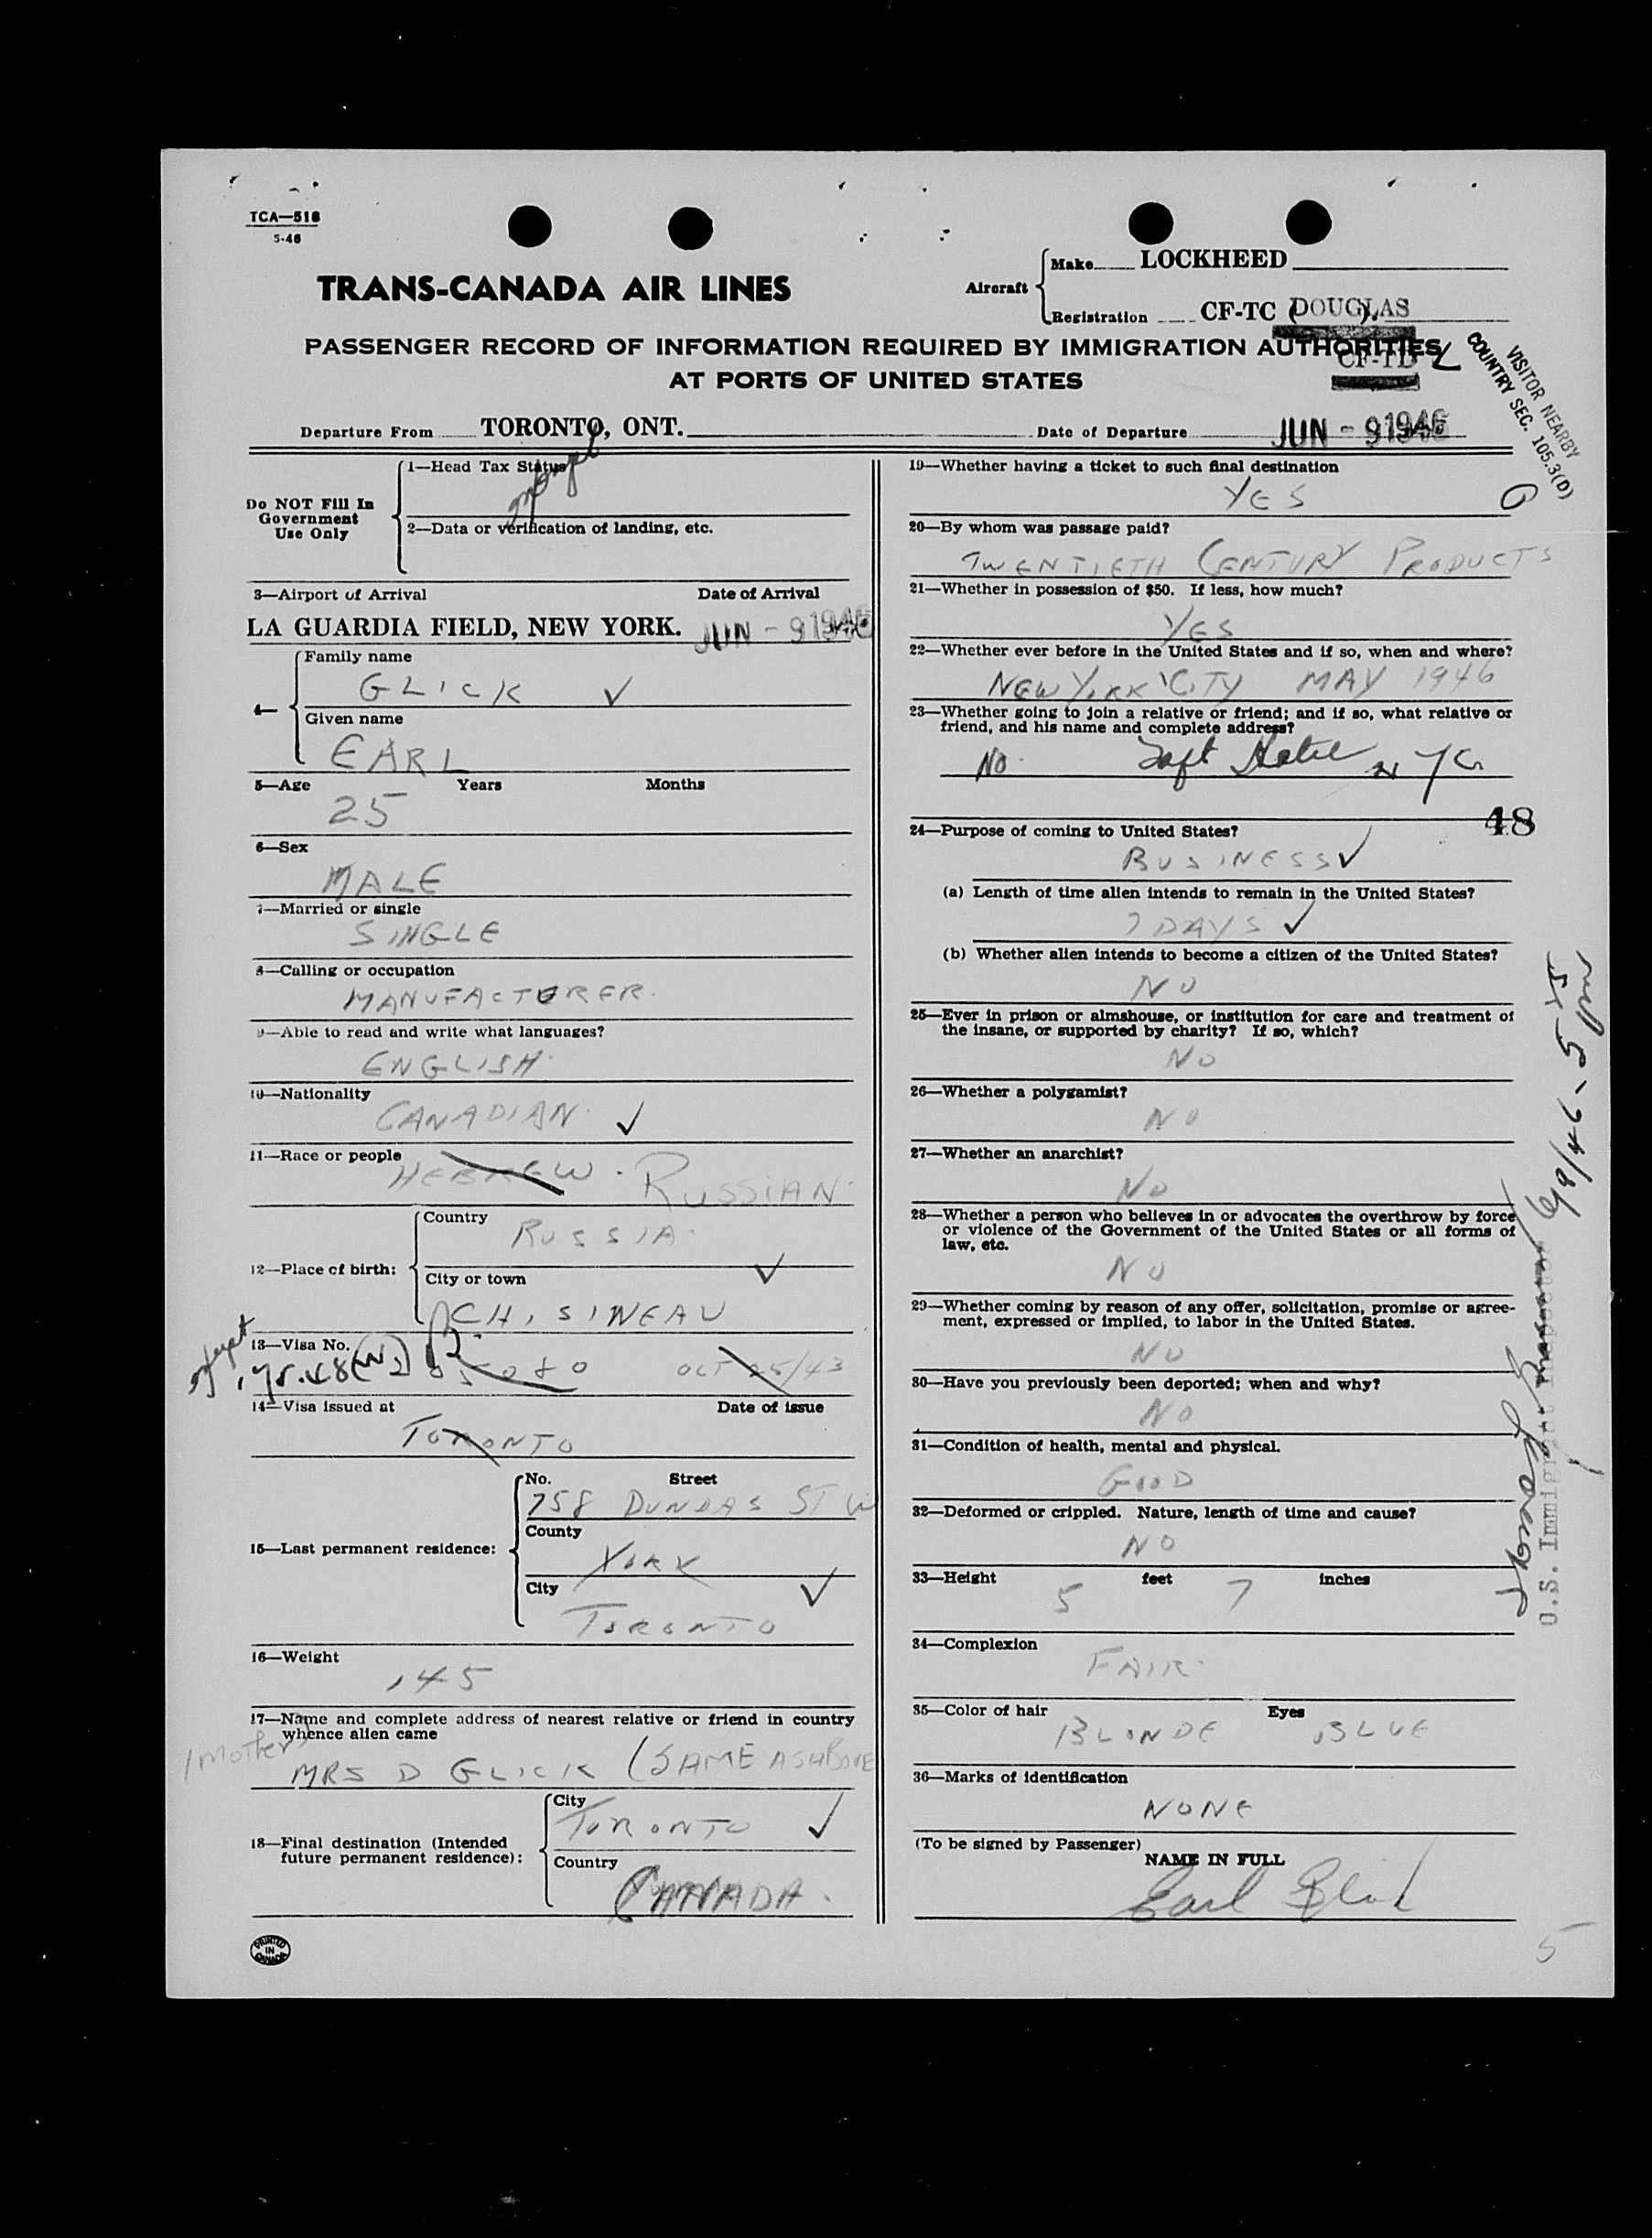 TCA—518
5-46
TRANS-CANADA AIR LINES
Aircraft
Make LOCKHEED
Registration CF-TC ( ). DOUGLAS
PASSENGER RECORD OF INFORMATION REQUIRED BY IMMIGRATION AUTHORITIES
CF-TD L
AT PORTS OF UNITED STATES
VISITOR NEARBY
COUNTRY SEC. 105.3(D)
Departure From TORONTO, ONT. Date of Departure JUN - 9 1946
Do NOT Fill In
Government
Use Only
1—Head Tax Status
2—Data or verification of landing, etc.
3—Airport of Arrival Date of Arrival
LA GUARDIA FIELD, NEW YORK. JUN - 9 1946
4—
Family name
GLICK ✓
Given name
EARL
5—Age Years Months
25
6—Sex
MALE
7—Married or single
SINGLE
8—Calling or occupation
MANUFACTURER.
9—Able to read and write what languages?
ENGLISH.
10—Nationality
CANADIAN. ✓
11—Race or people
HEBREW. RUSSIAN.
12—Place of birth:
Country
RUSSIA.
City or town ✓
CHISINEAU
13—Visa No.
OCT 25/43
14—Visa issued at Date of issue
TORONTO
15—Last permanent residence:
No. Street
758 DUNDAS ST W
County
YORK
City ✓
TORONTO
16—Weight
145
17—Name and complete address of nearest relative or friend in country
whence alien came
(Mother)
MRS D GLICK (SAME AS ABOVE
18—Final destination (Intended
future permanent residence):
City
TORONTO ✓
Country
CANADA.
PRINTED
IN
CANADA
19—Whether having a ticket to such final destination
YES
20—By whom was passage paid?
TWENTIETH CENTURY PRODUCTS
21—Whether in possession of $50. If less, how much?
YES
22—Whether ever before in the United States and if so, when and where?
NEW YORK CITY MAY 1946
23—Whether going to join a relative or friend; and if so, what relative or
friend, and his name and complete address?
NO. Taft Hotel N Y C
48
24—Purpose of coming to United States?
BUSINESS ✓
(a) Length of time alien intends to remain in the United States?
7 DAYS ✓
(b) Whether alien intends to become a citizen of the United States?
NO
25—Ever in prison or almshouse, or institution for care and treatment of
the insane, or supported by charity? If so, which?
NO
26—Whether a polygamist?
NO
27—Whether an anarchist?
NO
28—Whether a person who believes in or advocates the overthrow by force
or violence of the Government of the United States or all forms of
law, etc.
NO
29—Whether coming by reason of any offer, solicitation, promise or agree-
ment, expressed or implied, to labor in the United States.
NO
30—Have you previously been deported; when and why?
NO
31—Condition of health, mental and physical.
GOOD
32—Deformed or crippled. Nature, length of time and cause?
NO
33—Height feet inches
5 7
34—Complexion
FAIR.
35—Color of hair Eyes
BLONDE BLUE
36—Marks of identification
NONE
(To be signed by Passenger)
NAME IN FULL
Earl Glick
5
U.S. Immigrant Inspector